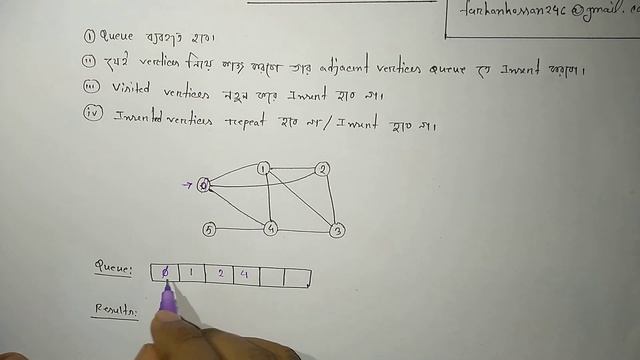 farhanhossan246@gmail.co
(i) Queue ব্যবহৃত হবে।
(ii) যেই vertices নিয়ে কাজ করবো তার adjacent vertices queue তে Insert করবো।
(iii) visited vertices নতুন করে Insert হবে না।
(iv) Inserted vertices repeat হবে না / Insert হবে না।
1 2
0
5 4 3
Queue: 0 1 2 4
Results: